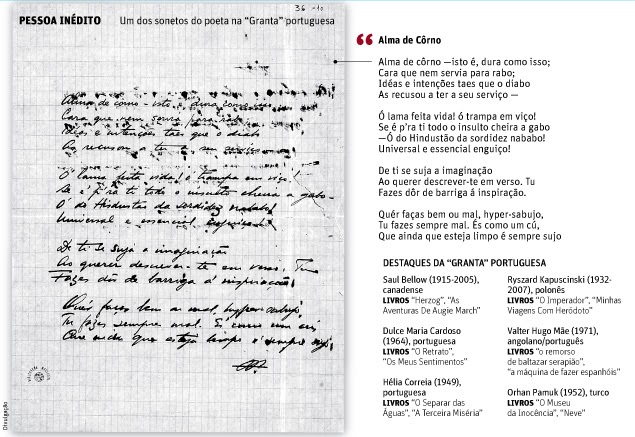 PESSOA INÉDITO
Um dos sonetos do poeta na "Granta" portuguesa
36 -10
Alma de côrno - isto é, dura como isso;
Cara que nem servia para rabo;
Idéas e intenções taes que o diabo
As recusou a ter a seu serviço -
Ó lama feita vida! ó trampa em viço!
Se é p'ra ti todo o insulto cheira a gabo -
Ó do Hindustão da sordidez nababo!
Universal e essencial enguiço!
De ti se suja a imaginação
Ao querer descrever-te em verso. Tu
Fazes dôr de barriga á inspiração.
Quér faças bem ou mal, hyper-sabujo,
Tu fazes sempre mal. És como um cú,
Que ainda que esteja limpo é sempre sujo.
Divulgação
Alma de Côrno
Alma de côrno —isto é, dura como isso;
Cara que nem servia para rabo;
Idéas e intenções taes que o diabo
As recusou a ter a seu serviço —
Ó lama feita vida! ó trampa em viço!
Se é p'ra ti todo o insulto cheira a gabo
—Ó do Hindustão da sordidez nababo!
Universal e essencial enguiço!
De ti se suja a imaginação
Ao querer descrever-te em verso. Tu
Fazes dôr de barriga á inspiração.
Quér faças bem ou mal, hyper-sabujo,
Tu fazes sempre mal. És como um cú,
Que ainda que esteja limpo é sempre sujo
DESTAQUES DA "GRANTA" PORTUGUESA
Saul Bellow (1915-2005),
canadense
LIVROS "Herzog", "As
Aventuras De Augie March"
Dulce Maria Cardoso
(1964), portuguesa
LIVROS "O Retrato",
"Os Meus Sentimentos"
Hélia Correia (1949),
portuguesa
LIVROS "O Separar das
Águas", "A Terceira Miséria"
Ryszard Kapuscinski (1932-
2007), polonês
LIVROS "O Imperador", "Minhas
Viagens Com Heródoto"
Valter Hugo Mãe (1971),
angolano/português
LIVROS "o remorso
de baltazar serapião",
"a máquina de fazer espanhóis"
Orhan Pamuk (1952), turco
LIVROS "O Museu
da Inocência", "Neve"